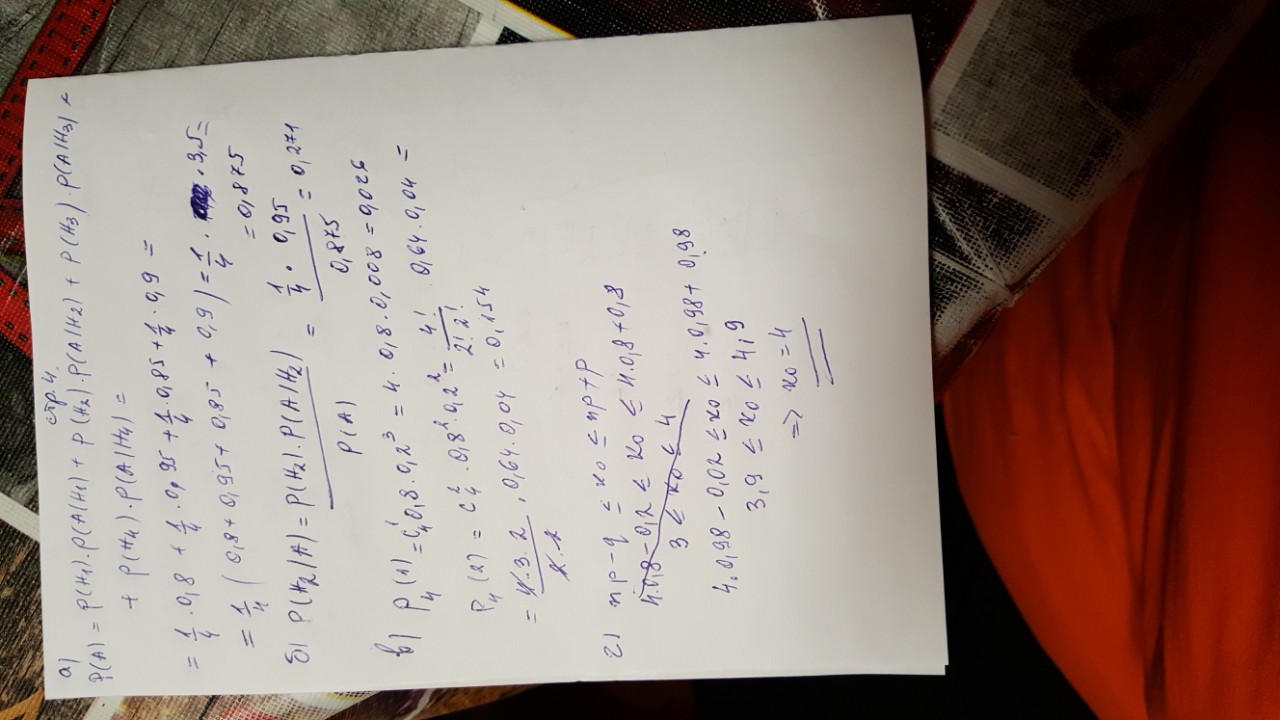 стр. 4.
а)
P(A) = P(H1).P(A|H1) + P(H2).P(A/H2) + P(H3).P(A|H3) +
+ P(H4).P(A|H4) =
= 1/4 . 0,8 + 1/4 . 0,95 + 1/4 . 0,85 + 1/4 . 0,9 =
= 1/4 (0,8 + 0,95 + 0,85 + 0,9) = 1/4 . . 3,5 =
= 0,875
б) P(H2/A) = P(H2).P(A/H2) / P(A) = 1/4 . 0,95 / 0,875 = 0,271
в) P4(1) = C4^1 0,8 . 0,2^3 = 4 . 0,8 . 0,008 = 0,026
P4(2) = C4^2 . 0,8^2 . 0,2^2 = 4! / 2! 2! . 0,64 . 0,04 =
= 4 . 3 . 2 / 2 . 2 . 0,64 . 0,04 = 0,154
г) np - q ≤ x0 ≤ np + p
4.0,8 - 0,2 ≤ x0 ≤ 4.0,8 + 0,8
3 ≤ x0 ≤ 4
4.0,98 - 0,02 ≤ x0 ≤ 4.0,98 + 0,98
3,9 ≤ x0 ≤ 4,9
=> x0 = 4